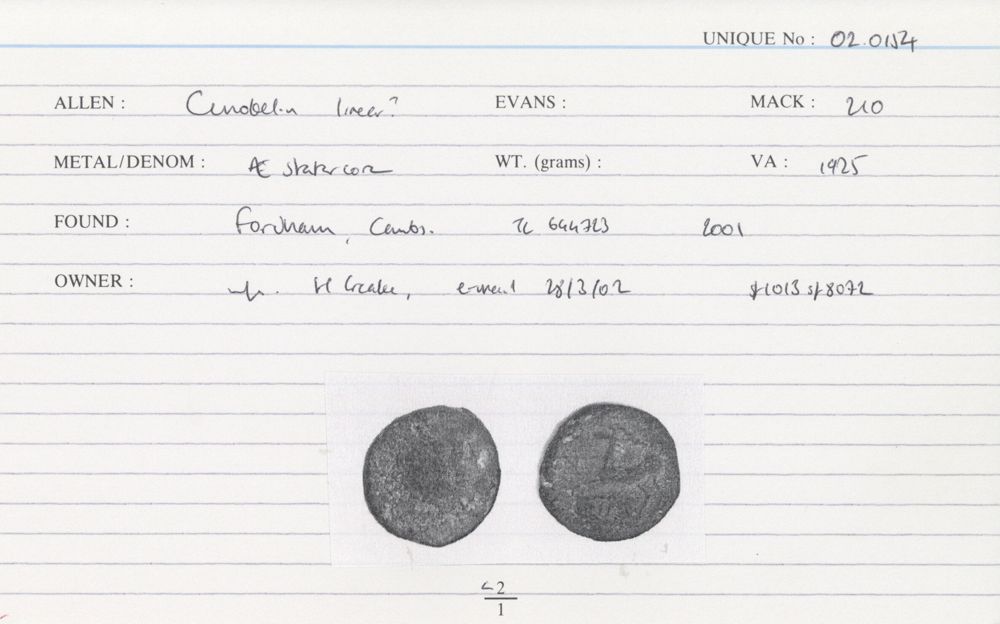 UNIQUE No : 02.0154
ALLEN : Cunobelin linear? EVANS : MACK : 210
METAL/DENOM : Æ stater core WT. (grams) : VA : 1925
FOUND : Fordham, Cambs. TL 644723 2001
OWNER : e-mail 28/3/02 8072
<2
1